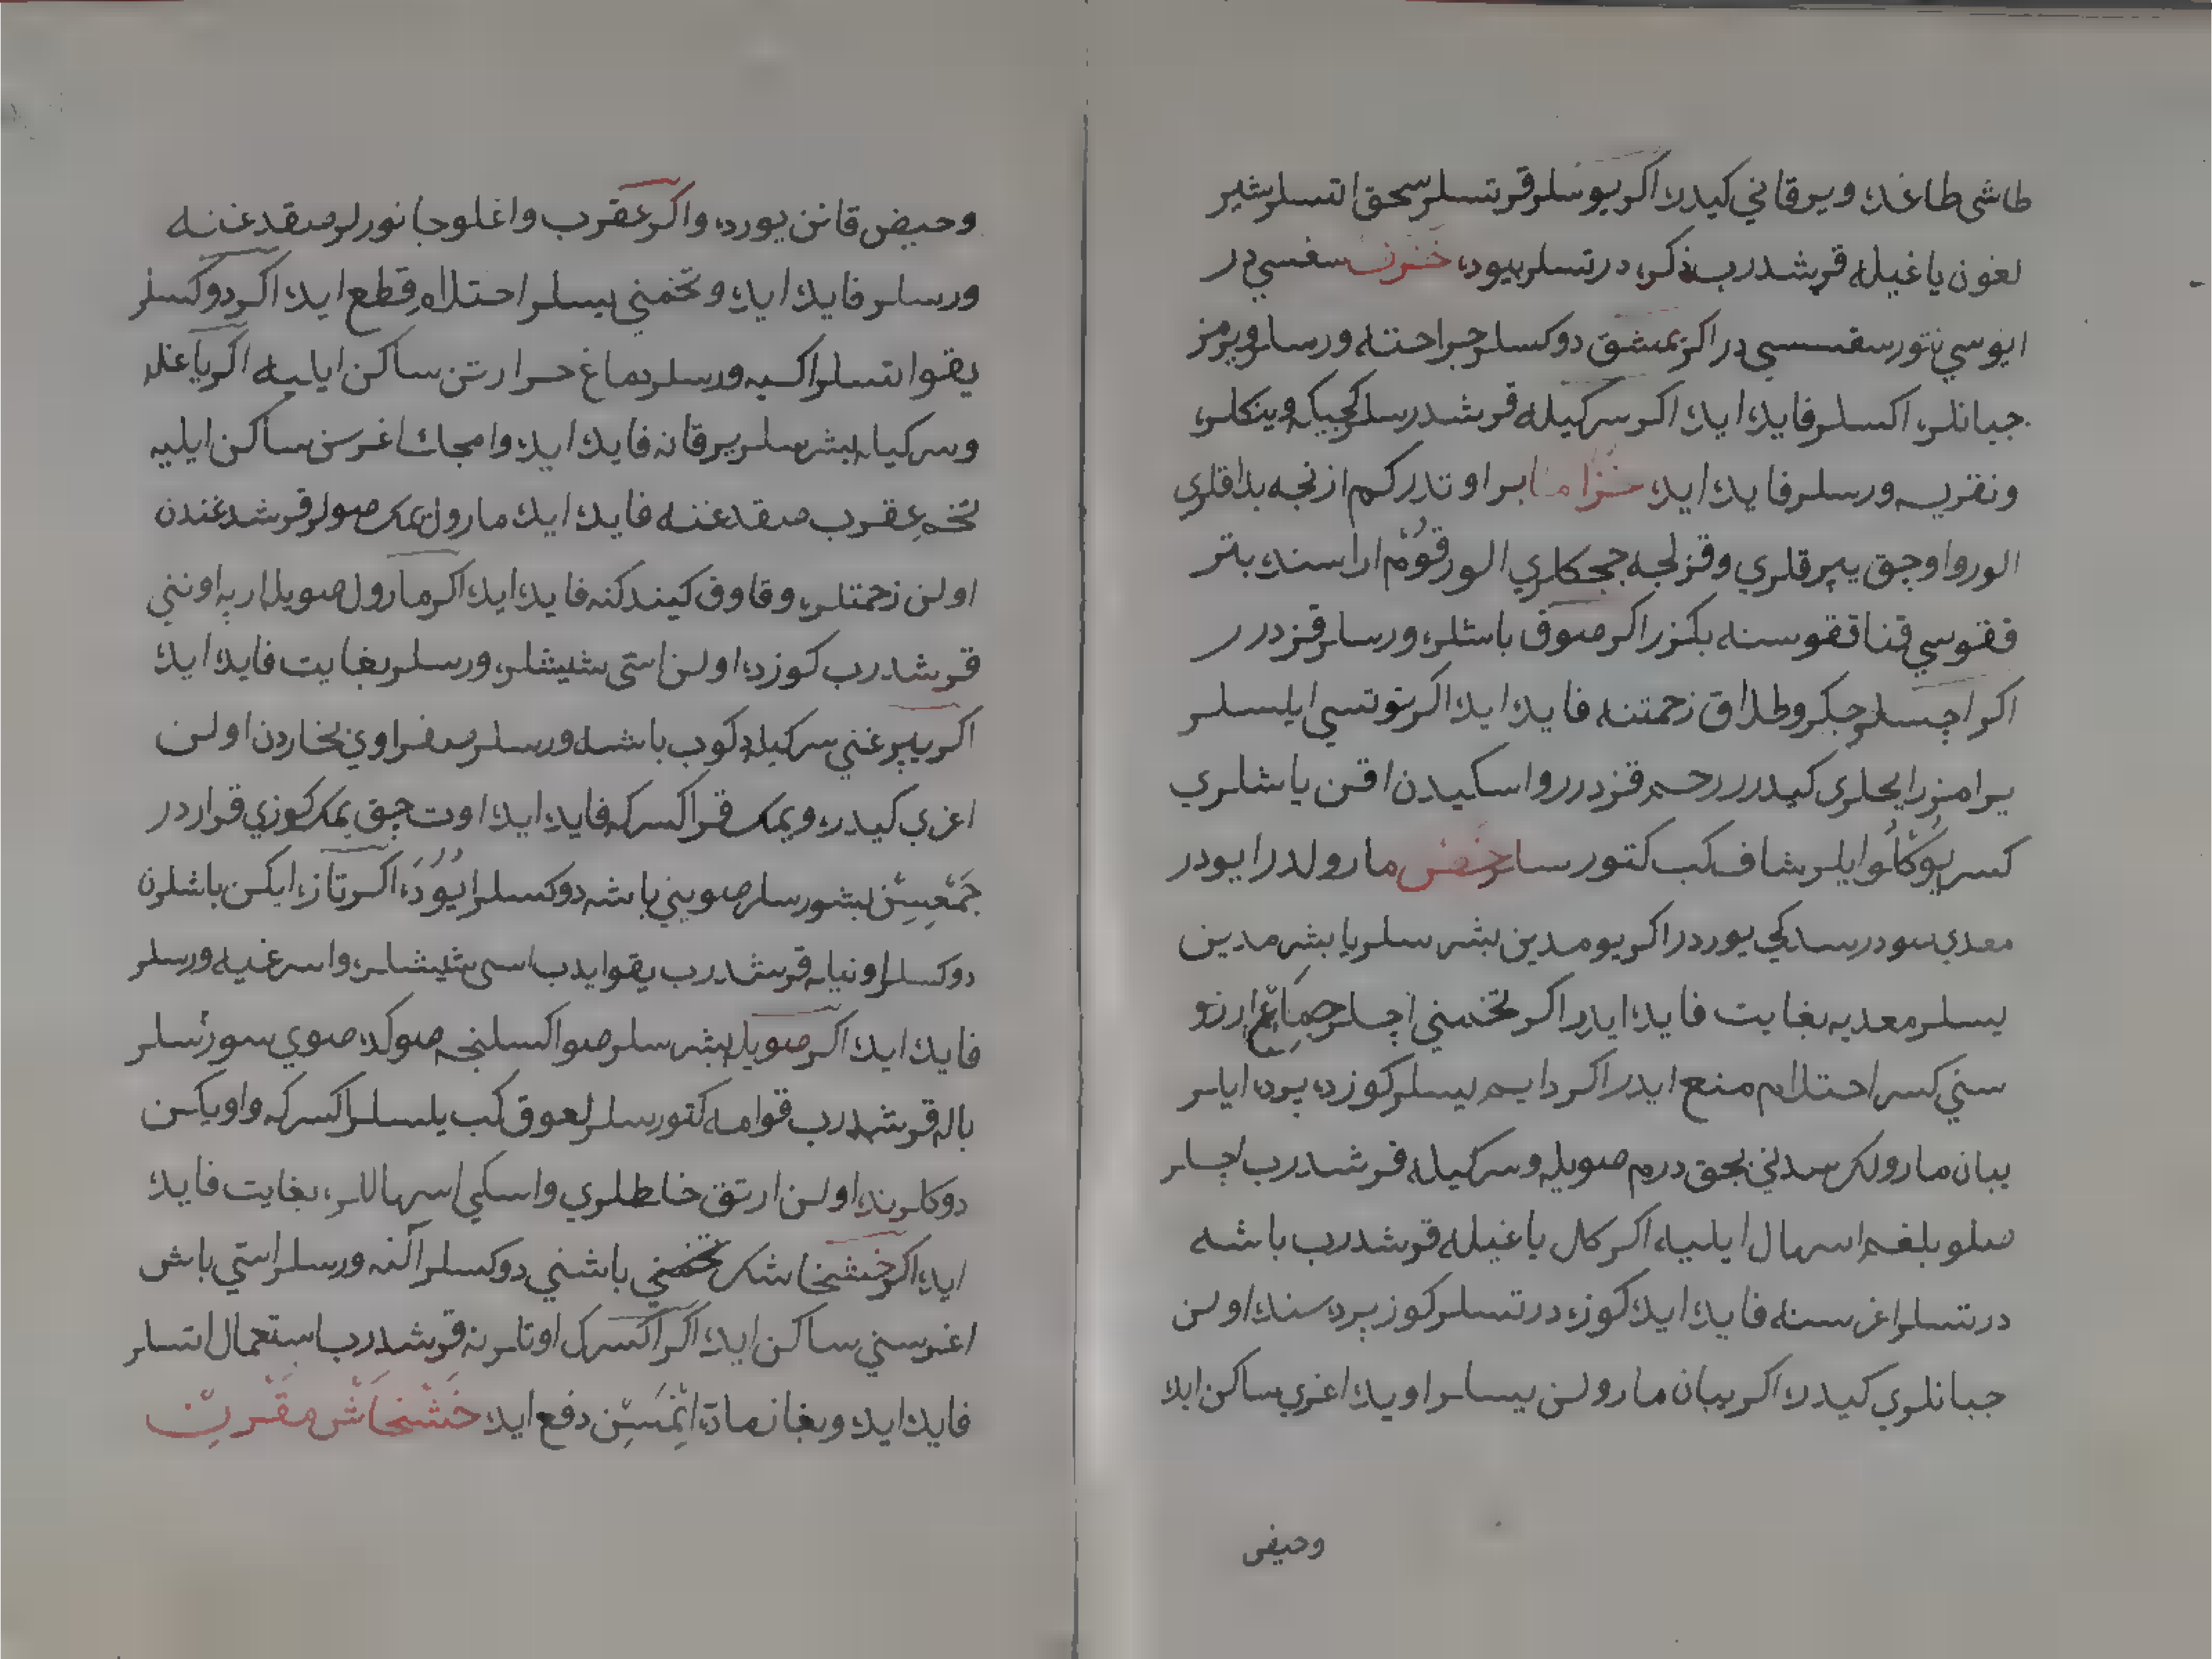 طاشی طاغده ویرقانی کیدر اکر یوسلر قرتسلر سحق اتسلر شیر
لغون یاغیله قرشدرب ذکره درتسلر بیوده خزف سفسی در
ایوسی تنور سقسسی در اکر یمشق دوکسلر جراحته ورسلر ویرمز
جبانلره اکسلر فایده ایده اکر سرکیله قرشدرسلر کجیکه وینکلره
ونقریه ورسلر فایده ایده خزاما بر اوتدر کم ازنجه بداقلری
الور واوجق یپرقلری وقزلجه ججکلری الور قوم اراسنده بتر
قفوسی قنا قفوسنه بکزر اکر صوق باشلره ورسلر قزدرر
اکر اجسلر جکر وطلاق زحمتنه فایده ایده اکر توتسی ایلسلر
یرامز رایحلری کیدرر رحم قزدرر واسکیدن اقن یاشلری
کسر یوکلو ایلر شاف کب کتورسلر خس مارولدر ایودر
معدی سودر سدکی یوردر اکر یومدین بشرسلر یا بشرمدین
یسلر معدیه بغایت فایده ایدر اکر تخمنی اچلر جماع ارزو
سنی کسر احتلام منع ایدر اکر دایم یسلر کوزده پرده ایلر
یبان مارولکر سدنی بجق درم صویله وسرکیله قرشدرب اچلر
صلو بلغم اسهال ایلیه اکر کل یاغیله قرشدرب باشه
درتسلر اغرسنه فایده ایده کوزه درتسلر کوز پردسنده اولن
جبانلری کیدره اکر یبان مارولن یسلر اویده اغری ساکن ایده
وحیض
وحیض قانن یورده واکر عقرب واغلو جانورلر صقدغنه
ورسلر فایده ایده وتخمنی یسلر احتلام قطع ایده اکر دوکسلر
یقو اتسلر اکسیه ورسلر دماغ حرارتن ساکن ایلیه اکر یاغله
وسرکیله بشرسلر یرقانه فایده ایده وامجک اغرسن ساکن ایلیه
تخم عقرب صقدغنه فایده ایده مارول یمک صولر قرشدغندن
اولن زحمتلره وقاوق کیندکنه فایده ایده اکر مارول صویله ارپه اوننی
قرشدرب کوزده اولن استی شیشلره ورسلر بغایت فایده ایده
اکر یپرغنی سرکیله دکوب باشه ورسلر صفراوی بخاردن اولن
اغری کیدره ویمک قرا اکسرکه فایده ایده اوت چق یمک کوزی قراردر
جمعسن بشورسلر صوینی باشه دوکسلر ایوده اکر تازه ایکن باشلرن
دوکسلر اونیله قرشدرب یقو ایدب اسی شیشلره واسرغیه ورسلر
فایده ایده اکر صویله بشرسلر صو اکسلنجه صوکده صوی سوزسلر
باله قرشدرب قوامه کتورسلر لعوق کب یلسلر اکسرکه واویکن
دوکلرنده اولن ارتق خلطلری واسکی اسهاللره بغایت فایده
ایده اکر خشخاشک تخمنی باشنی دوکسلر آلنه ورسلر استی باش
اغرسنی ساکن ایده اکر اکسرک اوتلرنه قرشدرب استعمال اتسلر
فایده ایده وبغانماده اتمسن دفع ایده خشخاش مقرن